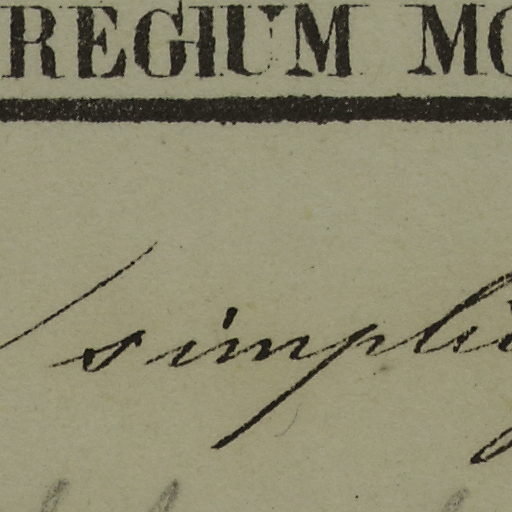 REGIUM MO
simpli